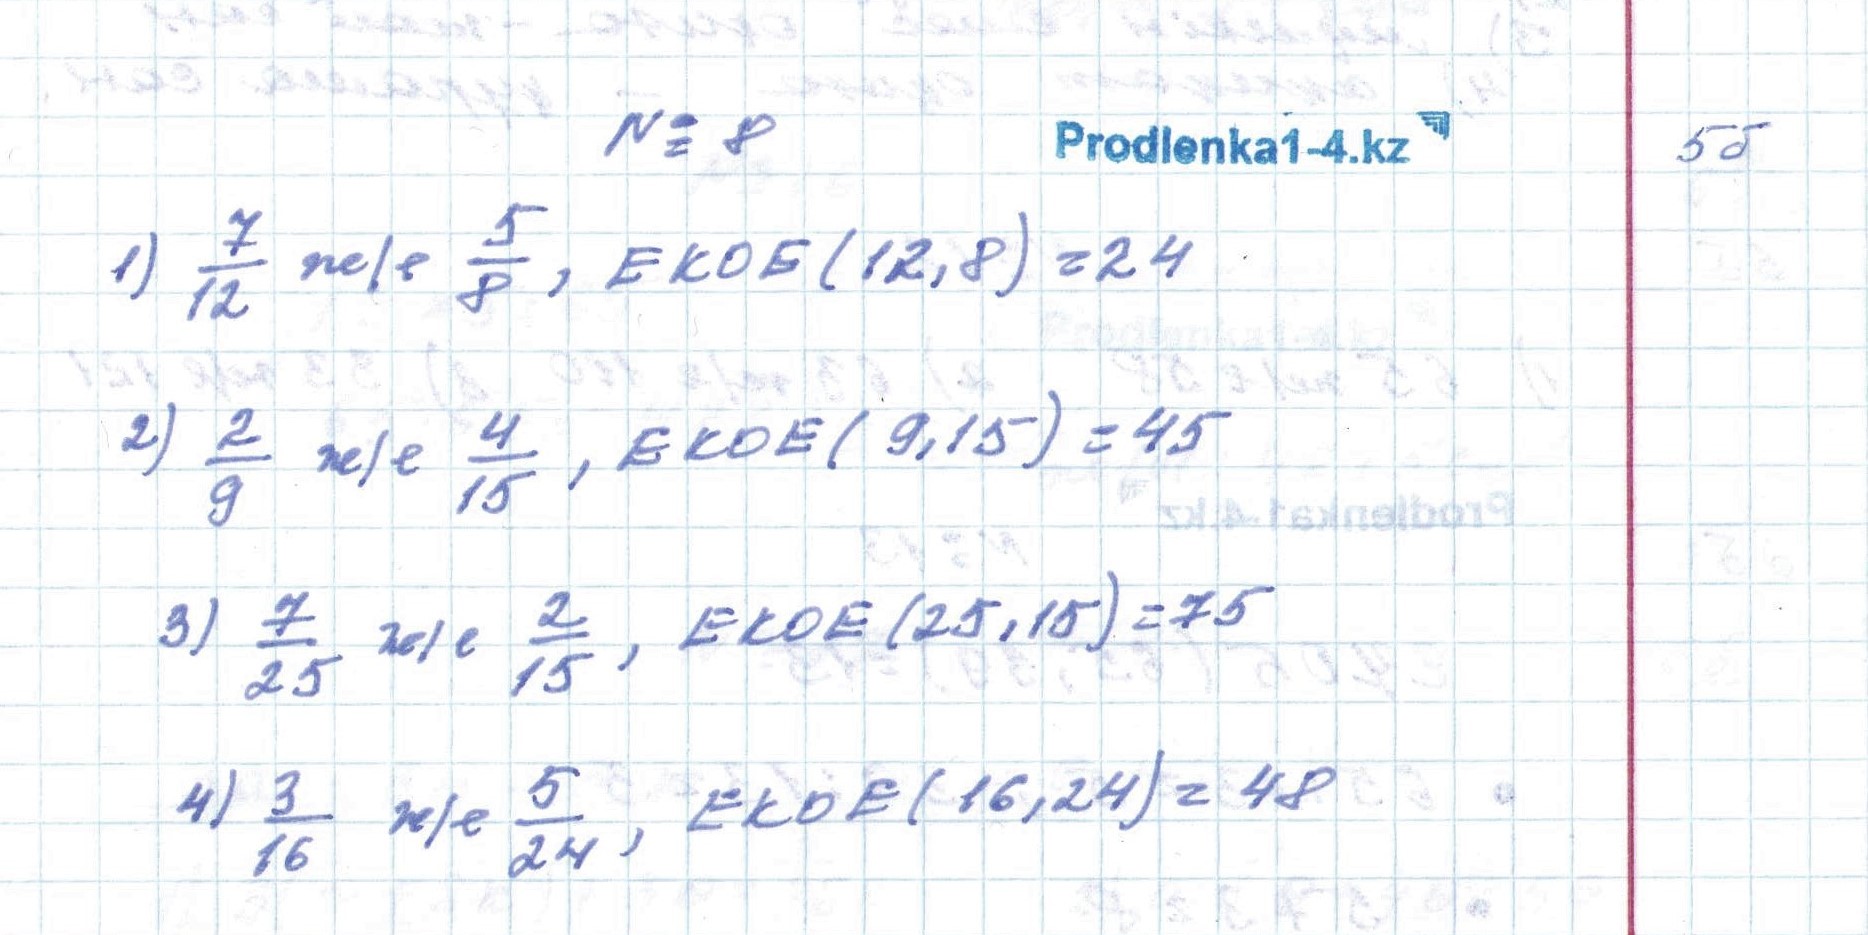 № 8 Prodlenka1-4.kz 5б
1) 7/12 ж/е 5/8, ЕКОЕ(12,8)=24
2) 2/9 ж/е 4/15, ЕКОЕ(9,15)=45
3) 7/25 ж/е 2/15, ЕКОЕ(25,15)=75
4) 3/16 ж/е 5/24, ЕКОЕ(16,24)=48